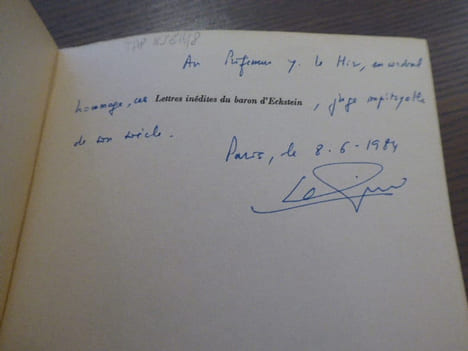 TAP
Au Professeur Y. Le Hir, en cordial
hommage, ces Lettres inédites du baron d'Eckstein, juge impitoyable
de son siècle.
Paris, le 8-6-1984